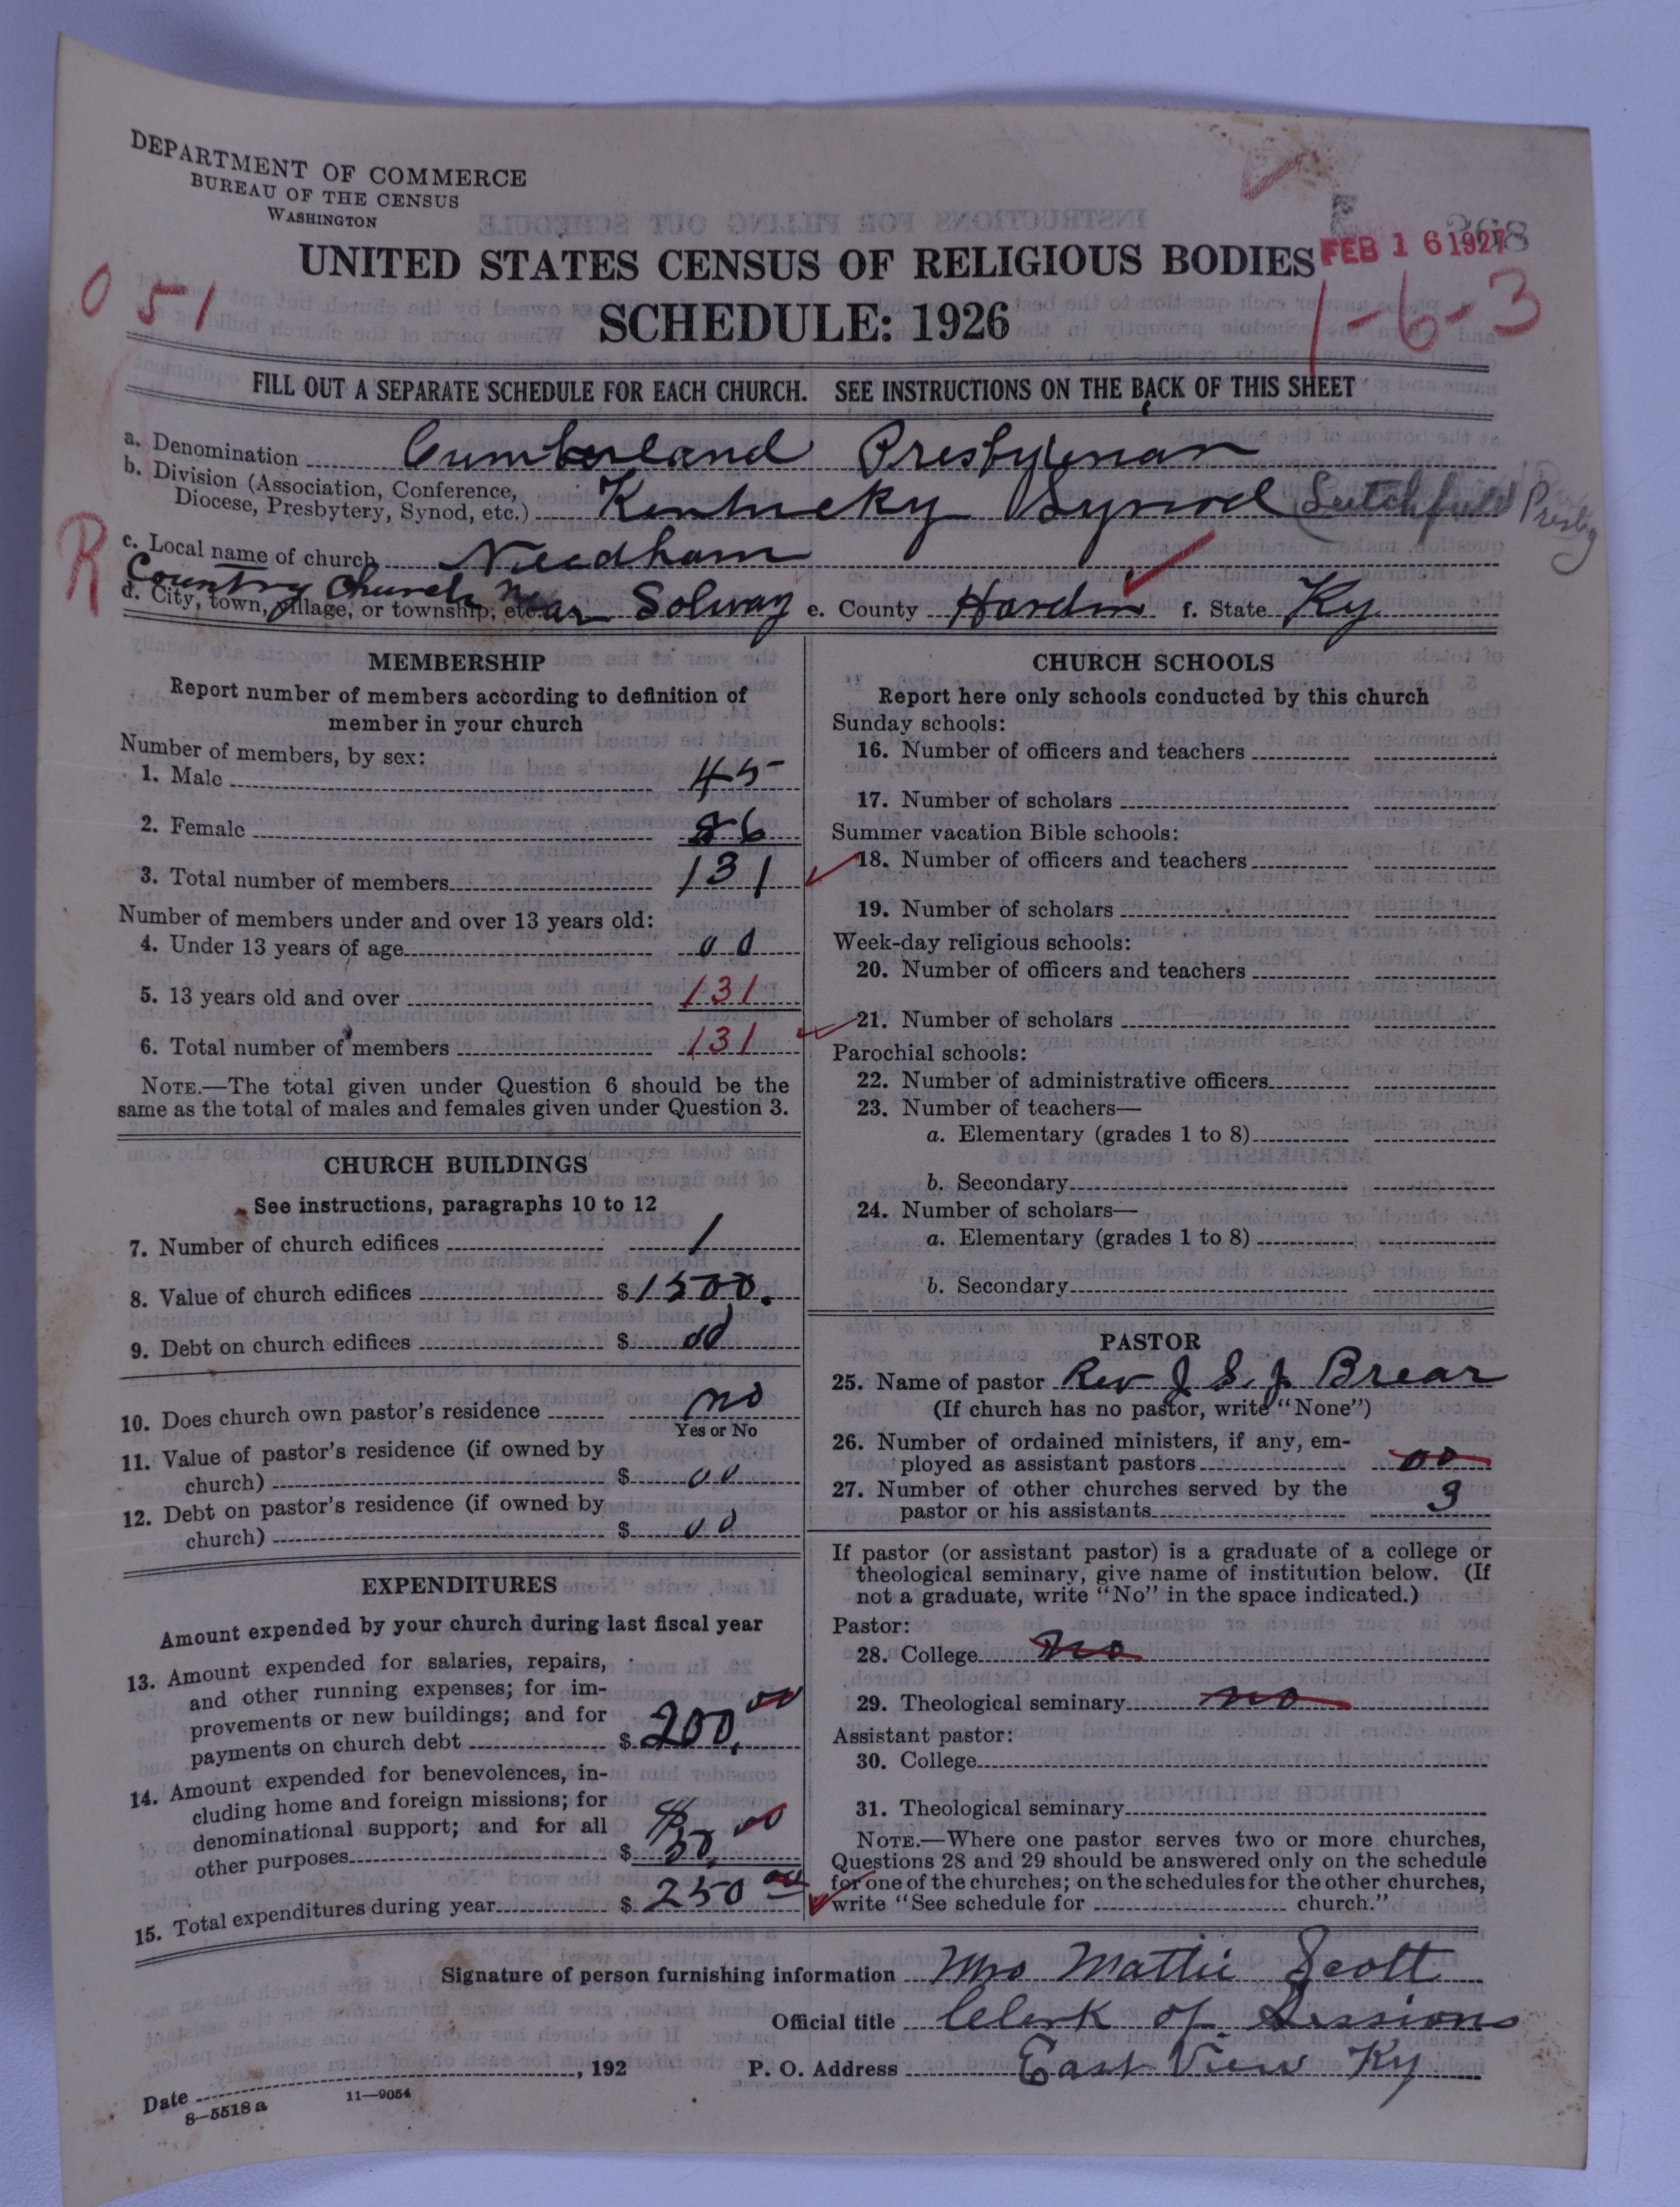 DEPARTMENT OF COMMERCE
BUREAU OF THE CENSUS
WASHINGTON
UNITED STATES CENSUS OF RELIGIOUS BODIES
FEB 16 1927
SCHEDULE: 1926
051
1-6-3
FILL OUT A SEPARATE SCHEDULE FOR EACH CHURCH. SEE INSTRUCTIONS ON THE BACK OF THIS SHEET
a. Denomination Cumberland Presbyterian
b. Division (Association, Conference, Diocese, Presbytery, Synod, etc.) Kentucky Synod Presby
R
c. Local name of church Needham
Country Church Near Solway
d. City, town, village, or township, etc. e. County Hardin f. State Ky.
MEMBERSHIP
Report number of members according to definition of
member in your church
Number of members, by sex:
1. Male 45
2. Female 86
3. Total number of members 131
Number of members under and over 13 years old:
4. Under 13 years of age 00
5. 13 years old and over 131
6. Total number of members 131
NOTE.—The total given under Question 6 should be the
same as the total of males and females given under Question 3.
CHURCH BUILDINGS
See instructions, paragraphs 10 to 12
7. Number of church edifices 1
8. Value of church edifices $1500.
9. Debt on church edifices $ 00
10. Does church own pastor's residence no
Yes or No
11. Value of pastor's residence (if owned by
church) $ 00
12. Debt on pastor's residence (if owned by
church) $ 00
EXPENDITURES
Amount expended by your church during last fiscal year
13. Amount expended for salaries, repairs,
and other running expenses; for im-
provements or new buildings; and for
payments on church debt $ 200.00
14. Amount expended for benevolences, in-
cluding home and foreign missions; for
denominational support; and for all
other purposes $ $50.00
15. Total expenditures during year $ 250 00
CHURCH SCHOOLS
Report here only schools conducted by this church
Sunday schools:
16. Number of officers and teachers
17. Number of scholars
Summer vacation Bible schools:
18. Number of officers and teachers
19. Number of scholars
Week-day religious schools:
20. Number of officers and teachers
21. Number of scholars
Parochial schools:
22. Number of administrative officers
23. Number of teachers—
a. Elementary (grades 1 to 8)
b. Secondary
24. Number of scholars—
a. Elementary (grades 1 to 8)
b. Secondary
PASTOR
25. Name of pastor Rev J. S. J. Brear
(If church has no pastor, write "None")
26. Number of ordained ministers, if any, em-
ployed as assistant pastors 00
27. Number of other churches served by the
pastor or his assistants 3
If pastor (or assistant pastor) is a graduate of a college or
theological seminary, give name of institution below. (If
not a graduate, write "No" in the space indicated.)
Pastor:
28. College no
29. Theological seminary no
Assistant pastor:
30. College
31. Theological seminary
NOTE.—Where one pastor serves two or more churches,
Questions 28 and 29 should be answered only on the schedule
for one of the churches; on the schedules for the other churches,
write "See schedule for church."
Signature of person furnishing information Mrs Mattie Scott
Official title Clerk of Sessions
Date , 192 P. O. Address East View Ky
8—5518 a 11—9054